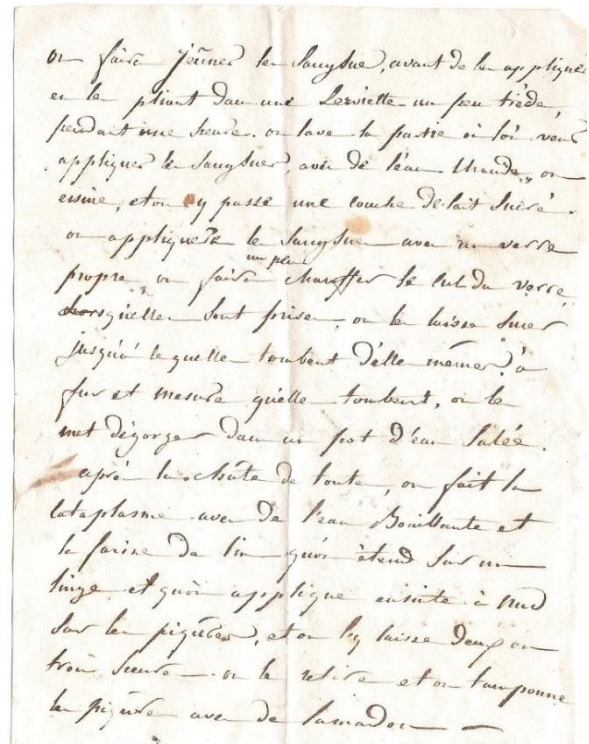 on faira jeûner les Sangsue, avant de les appliquer
en les pliant dans une Serviette un peu tiède
pendant une heure. on lave la partie où l'on veut
appliquer les Sangsues, avec de l'eau chaude, on
essuie, et on y passe une couche de lait Sucré.
on appliquera les Sangsues avec un verre
propre, on faira un peu chauffer le cul du verre,
Lorsquelles Sont prises, on les laisse Sucer
jusqu'à le quelle tombent d'elle mêmes, à
fur et mesure qu'elle tombent, on les
met dégorger dans un pot d'eau Salée.
après la chûte de toutes, on fait la
Cataplasme avec de l'eau Bouillante et
la farine de lin qu'on étend Sur un
linge et qu'on applique ensuite à nud
Sur les piqûres, et on l'y laisse deux ou
trois heures. on le retire et on tamponne
les piqûres avec de l'amadou —